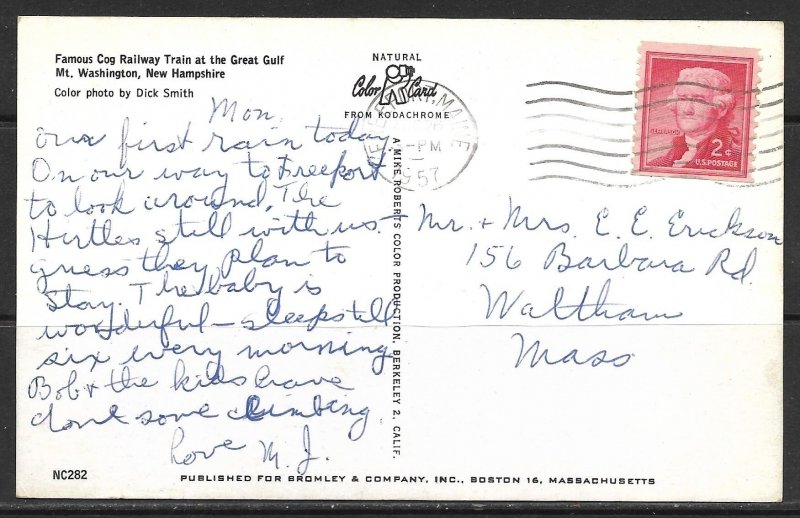 Famous Cog Railway Train at the Great Gulf
Mt. Washington, New Hampshire
Color photo by Dick Smith
NATURAL
Color Card
FROM KODACHROME
FREEPORT, MAINE
PM
1957
JEFFERSON
2¢
U.S. POSTAGE
Mon.
Our first rain today.
On our way to Freeport
to look around. The
Hirtles still with us.
guess they plan to
stay. The baby is
wonderful – sleeps till
six every morning
Bob & the kids have
done some climbing.
Love M. J.
A MIKE ROBERTS COLOR PRODUCTION, BERKELEY 2, CALIF.
Mr. + Mrs. E. E. Erickson
156 Barbara Rd.
Waltham
Mass
NC282
PUBLISHED FOR BROMLEY & COMPANY, INC., BOSTON 16, MASSACHUSETTS